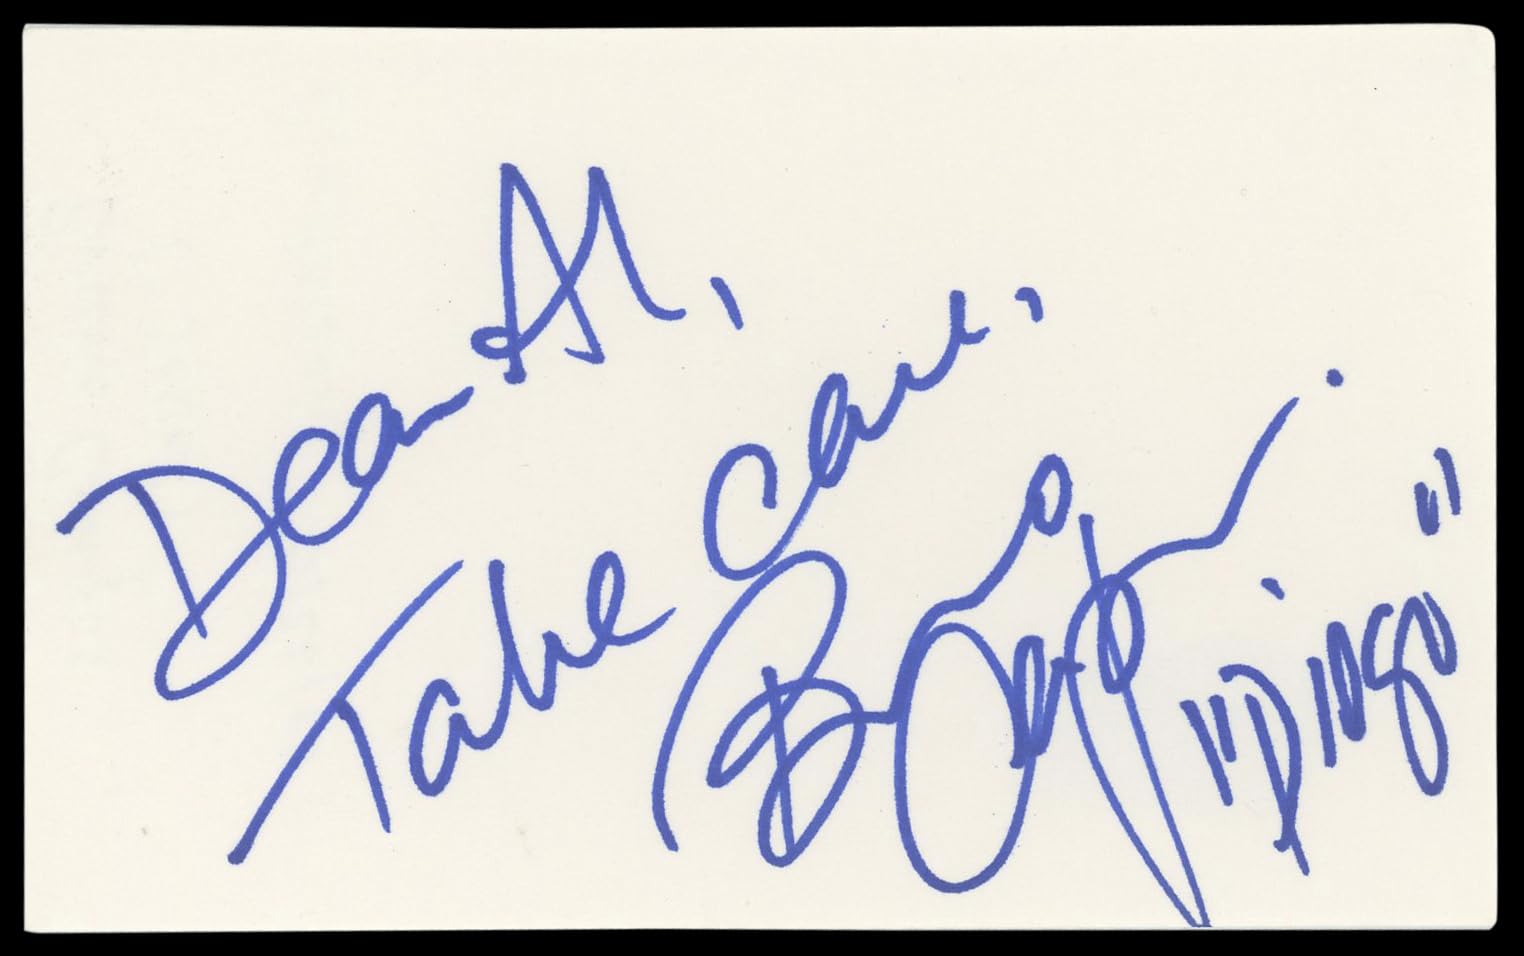 Dear Al,
Take Care,
"Dingo"